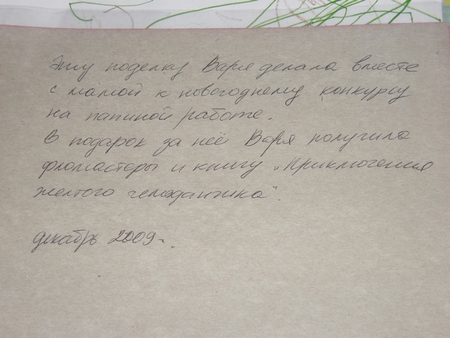 Эту поделку Варя делала вместе
с мамой к новогоднему конкурсу
на папиной работе.
В подарок за неё Варя получила
фломастеры и книгу „Приключения
желтого чемоданчика".
декабрь 2009г.